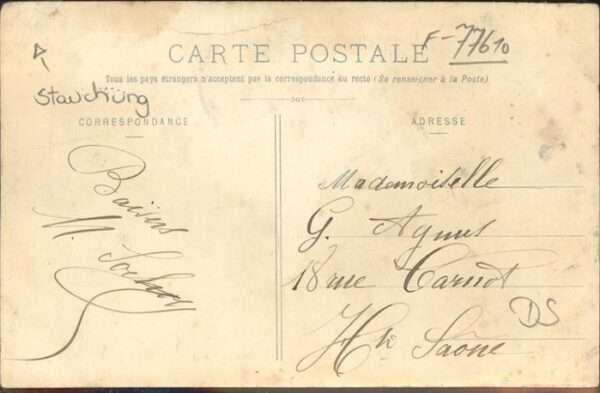 F-77610
CARTE POSTALE
Tous les pays étrangers n'acceptent pas la correspondance au recto (Se renseigner à la Poste)
Stauchüng
CORRESPONDANCE
Baisers
M.
ADRESSE
Mademoiselle
G. Aynus
18 rue Carnot
Hte Saône
DS